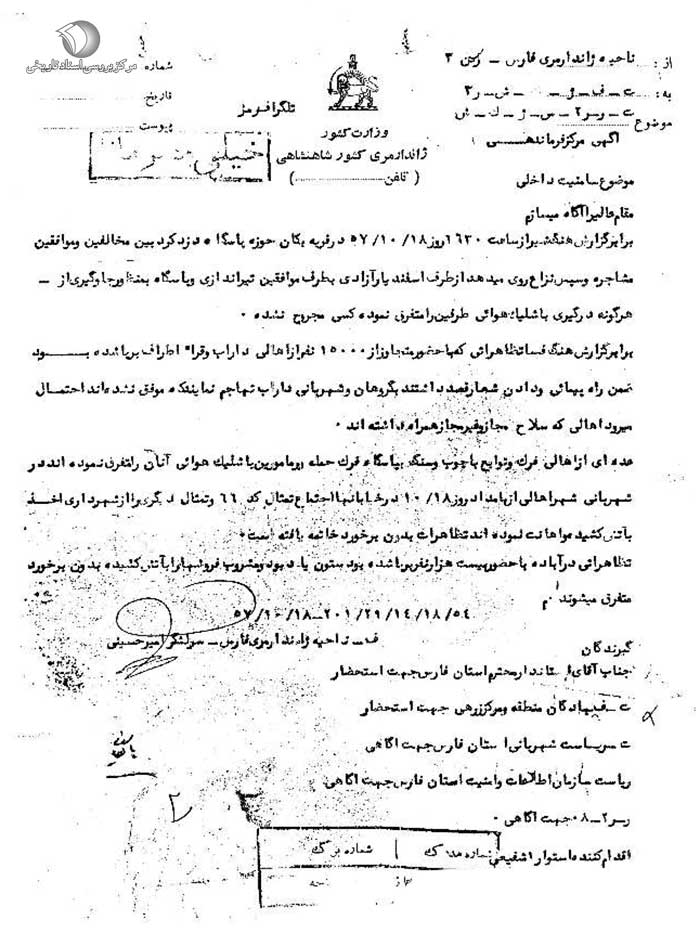 مرکز بررسی اسناد تاریخی
از : ناحیه ژاندارمری فارس - رکن ۳
به :
موضوع
اگهی مرکز فرماندهی
شماره
تاریخ
پیوست
تلگرافرمز
خیلی
وزارت کشور
ژاندارمری کشور شاهنشاهی
( تلفن )
موضوع سامنیت داخلی
مقام عالیرا آگاه میسازم
برابر گزارش هنگ از ساعت ۱۶۳۰ روز ۱۸/ ۱۰/ ۵۷ در قریه بکان حوزه پاسگاه دزدکرد بین مخالفین وموافقین
مشاجره وسپس نزاع روی میدهد از طرف اسفندیار آزادی بطرف موافقین تیراندازی وپاسگاه بمنظور جلوگیری از -
هرگونه درگیری با شلیک هوائی طرفین را متفرق نموده کسی مجروح نشده .
برابر گزارش هنگ فسا تظاهراتی که با حضور متجاوز از ۱۵۰۰۰ نفر از اهالی داراب وقراء اطراف برپا شده بــود
ضمن راه پیمائی ودادن شعار قصد داشتند بگروهان وشهربانی داراب تهاجم نمایند که موفق نشده اند احتمال
میرود اهالی که سلاح مجاز وغیر مجاز همراه داشته اند .
عده ای از اهالی فرک وتوابع با چوب وسنگ بپاسگاه فرک حمله ور مامورین با شلیک هوائی آنان را متفرق نموده اند در
شهربانی شهر اهالی از بامداد روز ۱۸/ ۱۰ در خیابانها اجتماع تمثال کد ۶۶ وتمثال دیگری را از شهرداری اخذ
بآتش کشیده واهانت نموده اند تظاهرات بدون برخورد خاتمه یافته است
تظاهراتی در آباده با حضور بیست هزار نفر برپا شده بود ستون یاد بود ومشروب فروشیها را بآتش کشیده بدون برخورد
متفرق میشوند م
۵۴/ ۱۸/ ۱۴/ ۲۹/ ۲۰۱-۱۸/ ۱۰/ ۵۷
ف - ناحیه ژاندارمری فارس - سرلشگر امیرحسینی
گیرندگان
جناب آقای استاندار محترم استان فارس جهت استحضار
ت - منطقه ومرکز زرهی جهت استحضار
ت سرپاست شهربانی استان فارس جهت اگاهی
ریاست سازمان اطلاعات وامنیت استان فارس جهت اگاهی
رسر ۲ - ۰۸ جهت اگاهی .
اقدام کننده استوار ۱ شفیعی
شماره مدرک
شماره برگ
از
۲